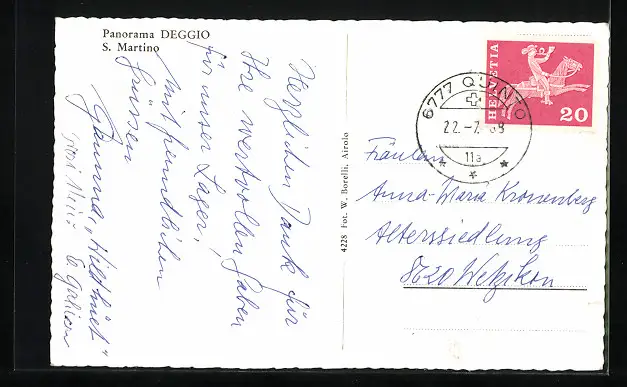 Panorama DEGGIO
S. Martino
Herzlichen Dank für
Ihre wertvollen Gaben
für unser Lager,
Mit freundlichen
Grüssen
"Hildhüt"
4228 Fot. W. Borelli, Airolo
HELVETIA
20
6777 QUINTO
22.-7. 68
11a
Fräulein
Anna-Maria Kronenberg
Alterssiedlung
8620 Wetzikon